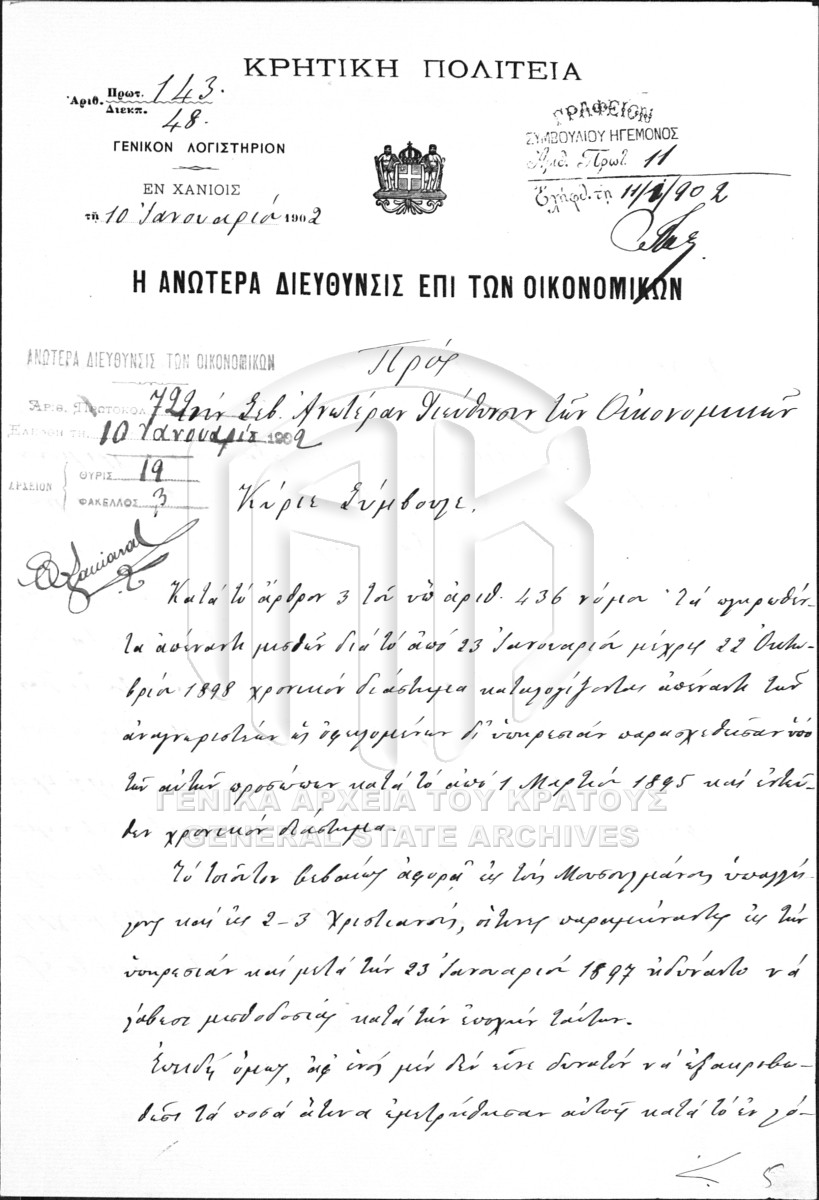 ΚΡΗΤΙΚΗ ΠΟΛΙΤΕΙΑ
Ἀριθ. Πρωτ. 143
Διεκπ. 48.
ΓΕΝΙΚΟΝ ΛΟΓΙΣΤΗΡΙΟΝ
ΕΝ ΧΑΝΙΟΙΣ
τῇ 10 Ἰανουαρίου 1902
ΓΡΑΦΕΙΟΝ
ΣΥΜΒΟΥΛΙΟΥ ΗΓΕΜΟΝΟΣ
Ἀριθ. Πρωτ. 11
Ἐλήφθ. τῇ 11/1/902
Η ΑΝΩΤΕΡΑ ΔΙΕΥΘΥΝΣΙΣ ΕΠΙ ΤΩΝ ΟΙΚΟΝΟΜΙΚΩΝ
ΑΝΩΤΕΡΑ ΔΙΕΥΘΥΝΣΙΣ ΤΩΝ ΟΙΚΟΝΟΜΙΚΩΝ
ΑΡΙΘ. ΠΡΩΤΟΚΟΛ. 72
ΕΛΗΦΘΗ ΤΗ 10 Ἰανουαρίου 1902
ΑΡΧΕΙΟΝ
ΘΥΡΙΣ 19
ΦΑΚΕΛΛΟΣ 3
Πρός
τήν Σεβ. Ἀνωτέραν Διεύθυνσιν τῶν Οἰκονομικῶν
Κύριε Σύμβουλε,
Κατά τό ἄρθρον 3 τοῦ ὑπ' ἀριθ. 436 νόμου "τά πληρωθέν-
τα ἀπέναντι μισθῶν διά τό ἀπό 23 Ἰανουαρίου μέχρις 22 Ὀκτω-
βρίου 1898 χρονικόν διάστημα καταλογίζονται ἀπέναντι τῶν
ἀναγνωριστέων ὡς ὀφειλομένων δι' ὑπηρεσίαν παρασχεθεῖσαν ὑπό
τῶν αὐτῶν προσώπων κατά τό ἀπό 1 Μαρτίου 1895 καί ἐντεῦ-
θεν χρονικόν διάστημα.
Τό τοιοῦτον βεβαίως ἀφορᾷ εἰς τούς Μουσουλμάνους ὑπαλλή-
λους καί εἰς 2-3 Χριστιανούς, οἵτινες παραμείναντες εἰς τήν
ὑπηρεσίαν καί μετά τήν 23 Ἰανουαρίου 1897 ἠδύναντο νά
λάβωσι μισθοδοσίας κατά τήν ἐποχήν ταύτην.
Ἐπειδή ὅμως, ἀφ' ἑνός μέν δέν εἶνε δυνατόν νά ἐξακριβω-
θῶσι τά ποσά ἅτινα ἐμετρήθησαν αὐτοῖς κατά τό ἐν λό-
5
ΓΕΝΙΚΑ ΑΡΧΕΙΑ ΤΟΥ ΚΡΑΤΟΥΣ
GENERAL STATE ARCHIVES